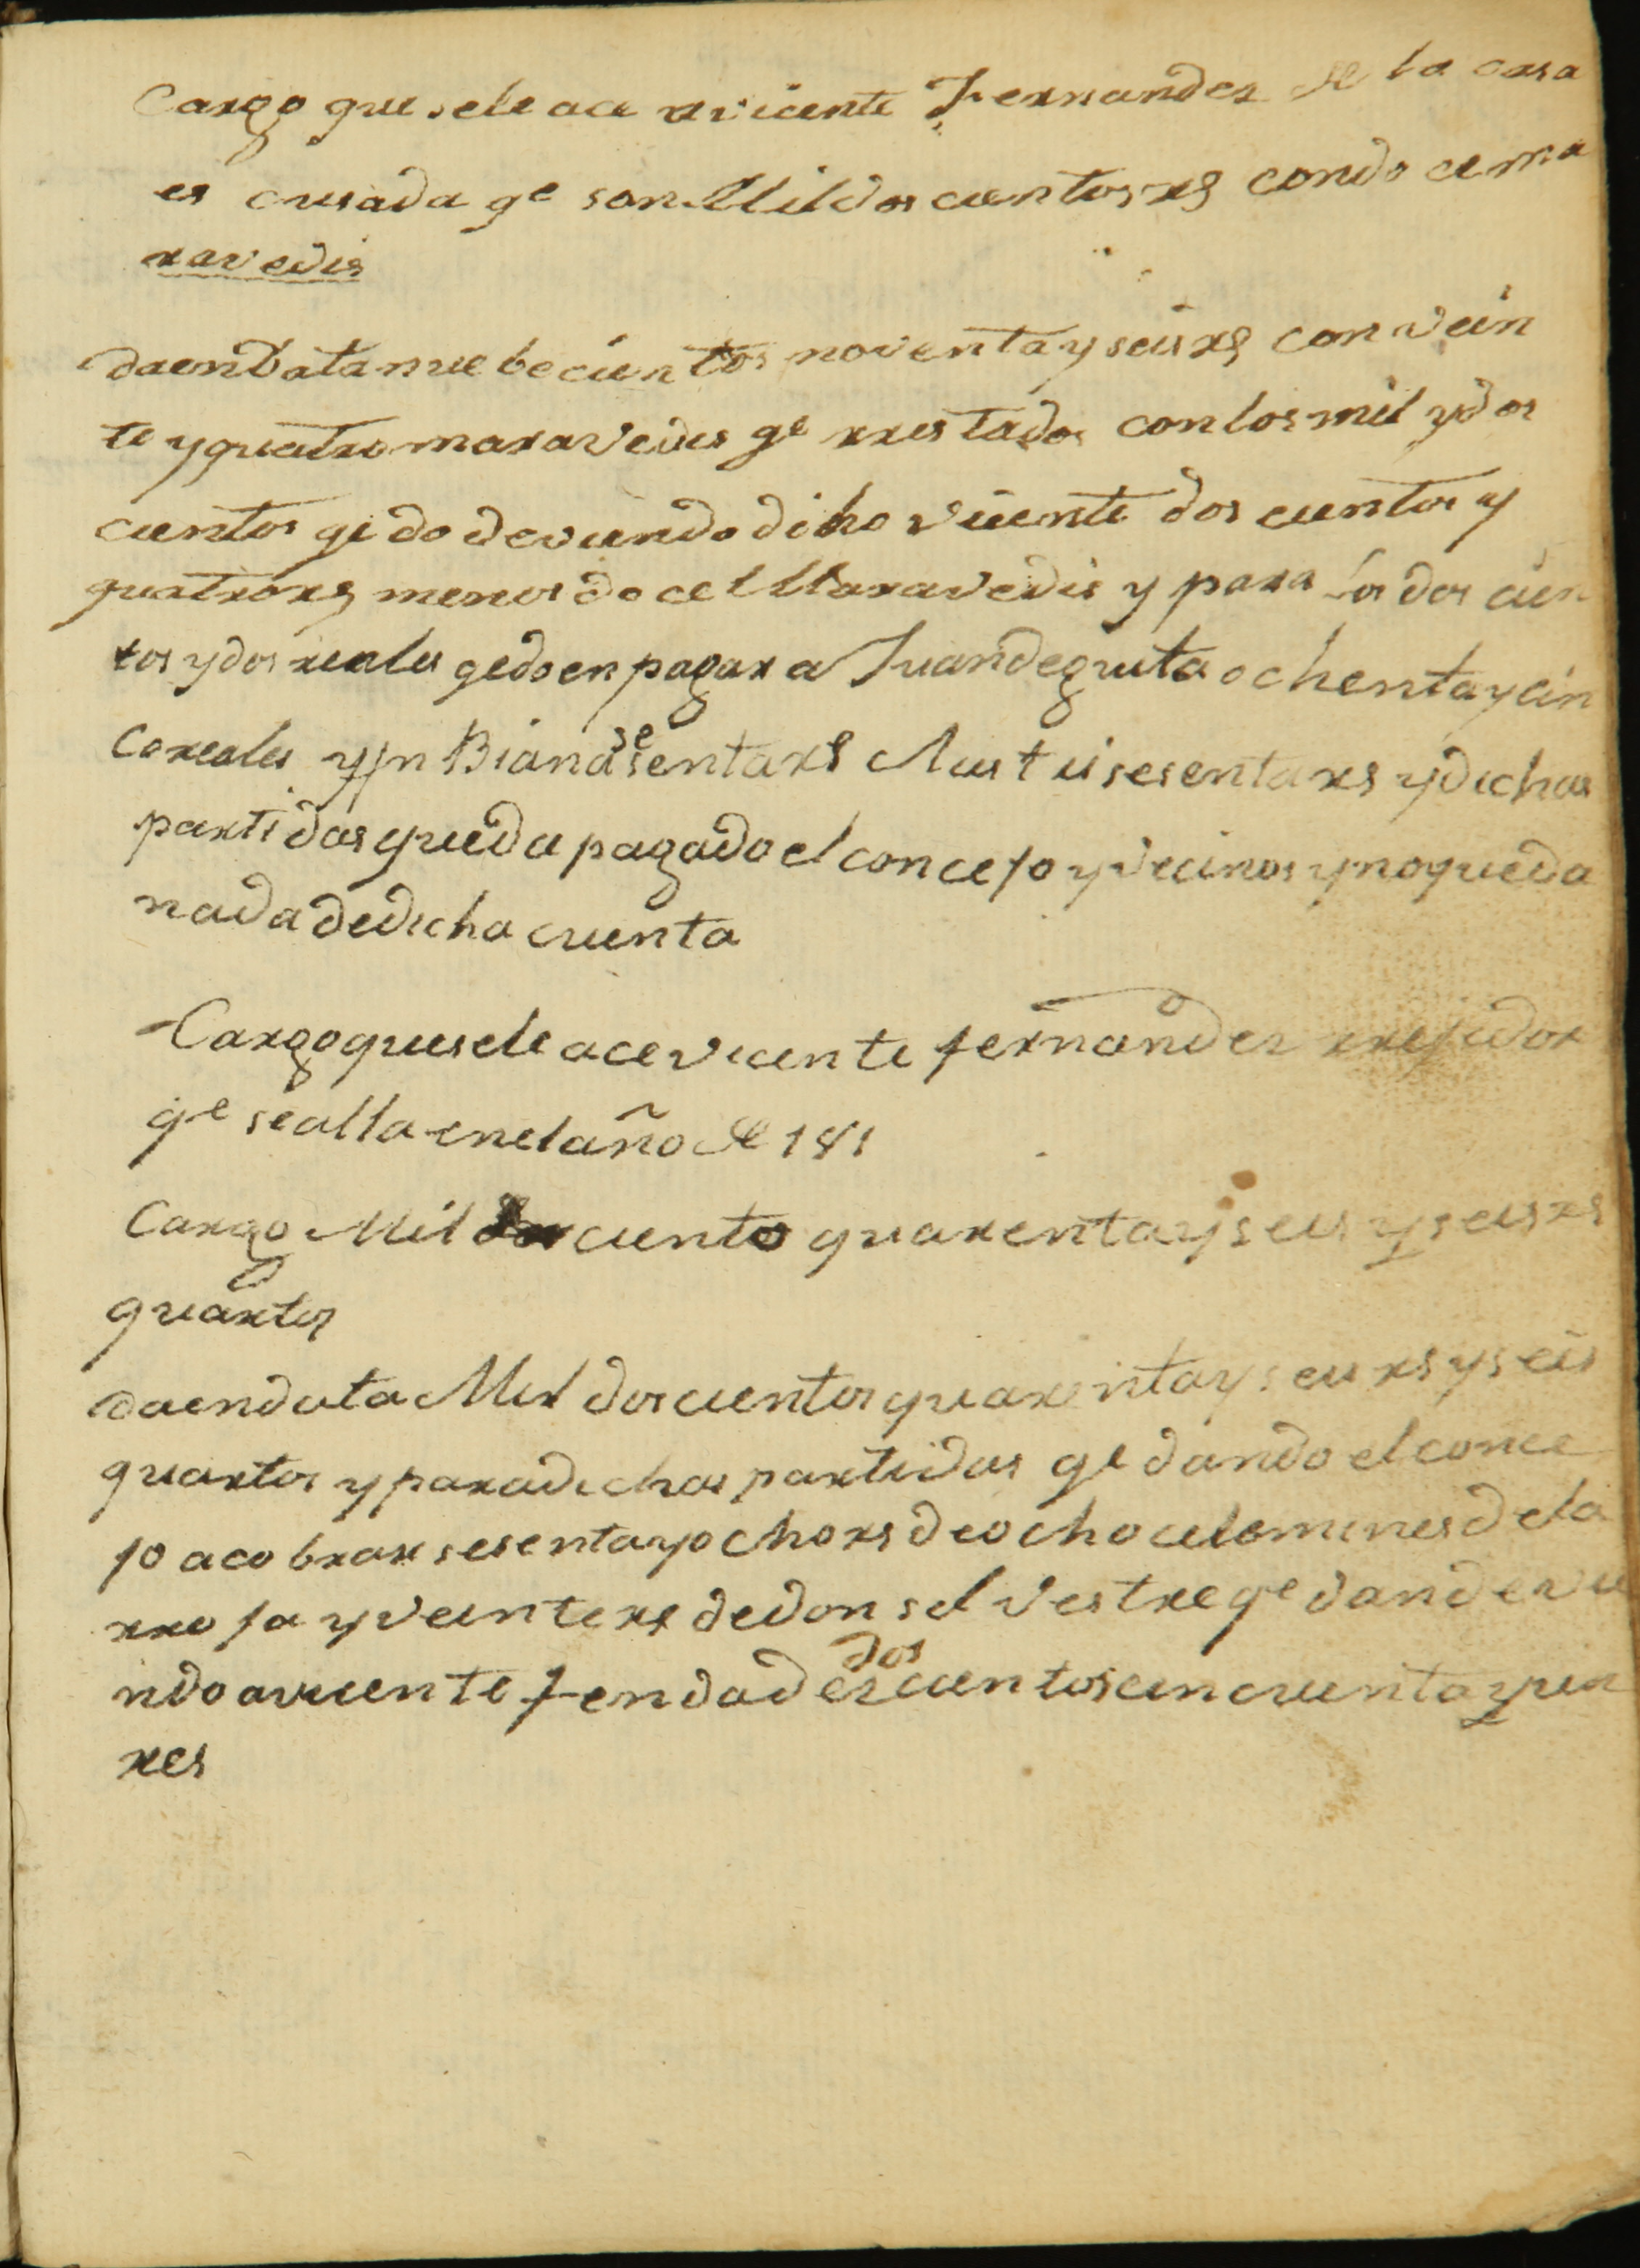 Cargo que sele ace a vicente Fernandez de la casa
es cusada qe son Mil dos cientos rs con do ce ma
ravedis
da en Data nuebecientos noventa y seis rs con vein
te y quatro maravedis qe rrestados con los mil y dos
cientos qe do deviendo diho vicente dos cientos y
quatro rs menos doce Maravedis y para los dos cien
tos y dos reales qe do en pagar a Juan de guita ochenta y cin
co reales y Biana sesenta rs sesenta rs y dichas
partidas queda pagado el concejo y vecinos y no queda
nada de dicha cuenta
Cargo que sele ace vicente fernandez rrejidor
qe se alla en el año de 181
Cargo Mil ciento quarenta y seis y seis rs
quartos
da en data Mil dos cientos quarenta y seis rs y seis
quartos y para dichas partidas qe dando el conce
jo a cobrar sesenta y ocho rs de ocho celemines de la
rroja y veinte rs de don selvestre qe dan devie
ndo a vicente fendadez dos cientos cincuenta y un
res